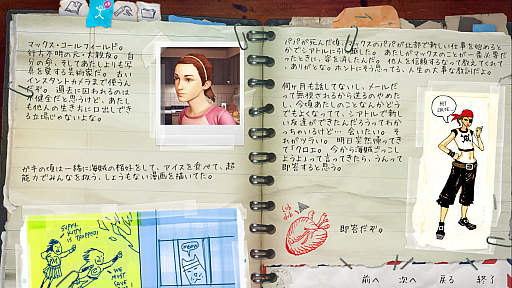 マックス・コールフィールド。
行方不明の元・大親友。自
分の命、そしてあたしよりも写
真を愛する芸術家だ。古い
インスタントカメラで使うん
だぞ。過去に囚われるのは
不健全だと思うけど、あたし
も他人の生き方に口出しでき
る立場じゃないよな。
ガキの頃は一緒に海賊の格好をして、アイスを食べて、超
能力でみんなを救う、しょうもない漫画を描いてた。
SUPER
KITTY
IS TRAPPED!
WE
MUST
SAVE
meow
パパが死んだ頃、マックスのパパが北部で新しい仕事を始めると
かでシアトルに引っ越した。あたしがマックスのことが一番必要だ
ったときに、姿を消したんだ。他人を信頼するなって教えてくれて、
ありがとな。ホントにそう思ってる。人生の大事な教訓だよ。
何ヶ月も話してないし、メールだ
って無視されるから送るのやめた
し、今頃あたしのことなんかどう
でもよくなってて、シアトルで新し
い友達ができたんだろうってわか
っちゃいるけど…会いたい。そ
れがツラい。明日突然帰ってき
て「クロエ。今から海賊ごっこし
ようよ」って言ってきたら、うんって
即答すると思う。
即答だぞ。
lub
dub
HEY
CHLOE...
前へ 次へ 戻る 終了